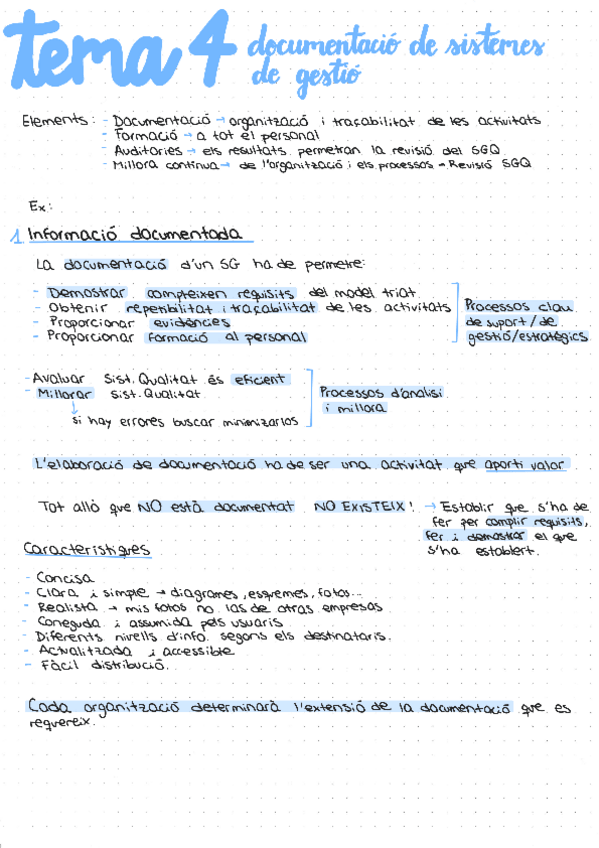 tema 4 documentació de sistemes
de gestió
Elements: - Documentació → organització i traçabilitat de les activitats
- Formació → a tot el personal
- Auditories → els resultats permetran la revisió del SGQ
- Millora contínua → de l'organització i els processos → Revisió SGQ
Ex:
1 Informació documentada
La documentació d'un SG ha de permetre:
- Demostrar compleixen requisits del model triat
- Obtenir repetibilitat i traçabilitat de les activitats
- Proporcionar evidències
- Proporcionar formació al personal
Processos clau
de suport/de
gestió/estratègics
- Avaluar Sist. Qualitat és eficient
- Millorar Sist. Qualitat
↓
si hay errores buscar minimizarlos
Processos d'anàlisi
i millora
L'elaboració de documentació ha de ser una activitat que aporti valor
Tot allò que NO està documentat NO EXISTEIX! → Establir que s'ha de
fer per complir requisits,
fer i demostrar el que
s'ha establert.
Característiques
- Concisa
- Clara i simple → diagrames, esquemes, fotos...
- Realista → mis fotos no las de otras empresas
- Coneguda i assumida pels usuaris
- Diferents nivells d'info. segons els destinataris.
- Actualitzada i accessible
- Fàcil distribució.
Cada organització determinarà l'extensió de la documentació que es
requereix.